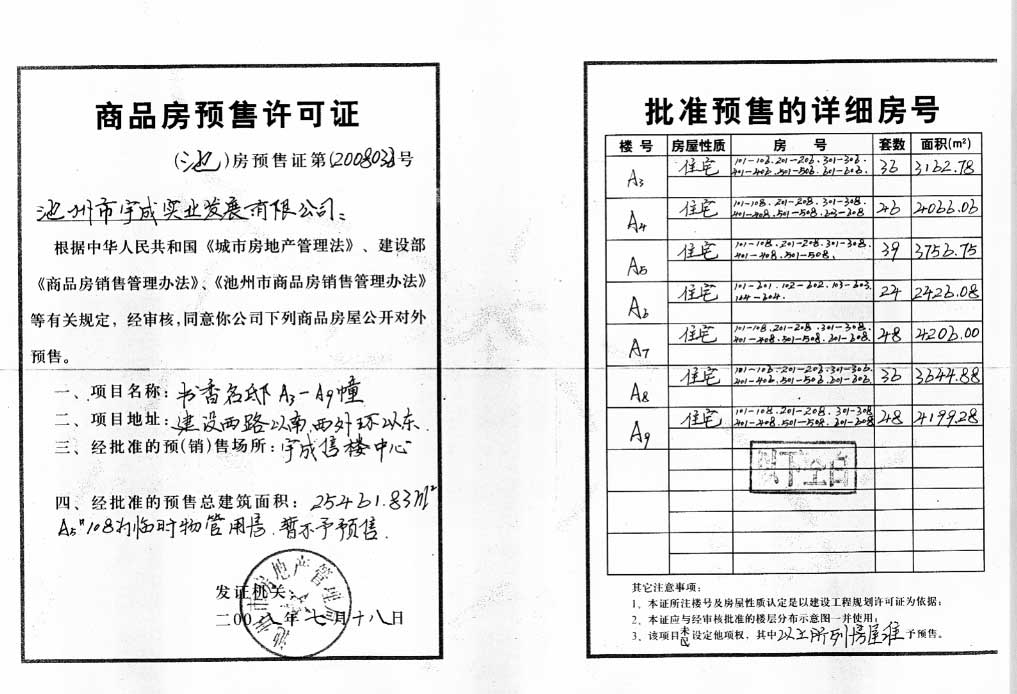 商品房预售许可证
(池)房预售证第(2008038)号
池州市宇成实业发展有限公司:
根据中华人民共和国《城市房地产管理法》、建设部
《商品房销售管理办法》、《池州市商品房销售管理办法》
等有关规定，经审核，同意你公司下列商品房屋公开对外
预售。
一、项目名称：书香名邸A3-A9幢
二、项目地址：建设西路以南,西外环以东.
三、经批准的预(销)售场所：宇成售楼中心
四、经批准的预售总建筑面积：25461.83m²
A5#108为临时物管用房.暂不予预售.
发证机关：
二00八年七月十八日
批准预售的详细房号
楼号 房屋性质 房号 套数 面积(m²)
A3 住宅 101-106.201-206.301-306. 36 3162.78
401-406.501-506.601-606.
A4 住宅 101-108.201-208.301-308. 46 4066.06
401-408.501-508.
A5 住宅 101-108.201-208.301-308. 39 3756.75
401-408.501-508.
A6 住宅 101-601.102-602.103-603. 24 2426.08
104-604.
A7 住宅 101-108.201-208.301-308. 48 4206.00
401-408.501-508.601-608.
A8 住宅 101-106.201-206.301-306. 36 3644.88
401-406.501-506.601-606.
A9 住宅 101-108.201-208.301-308 48 4199.28
401-408.501-508.601-608
以下空白
其它注意事项：
1、本证所注楼号及房屋性质认定是以建设工程规划许可证为依据；
2、本证应与经审核批准的楼层分布示意图一并使用；
3、该项目未设定他项权，其中以上所列房屋准予预售。